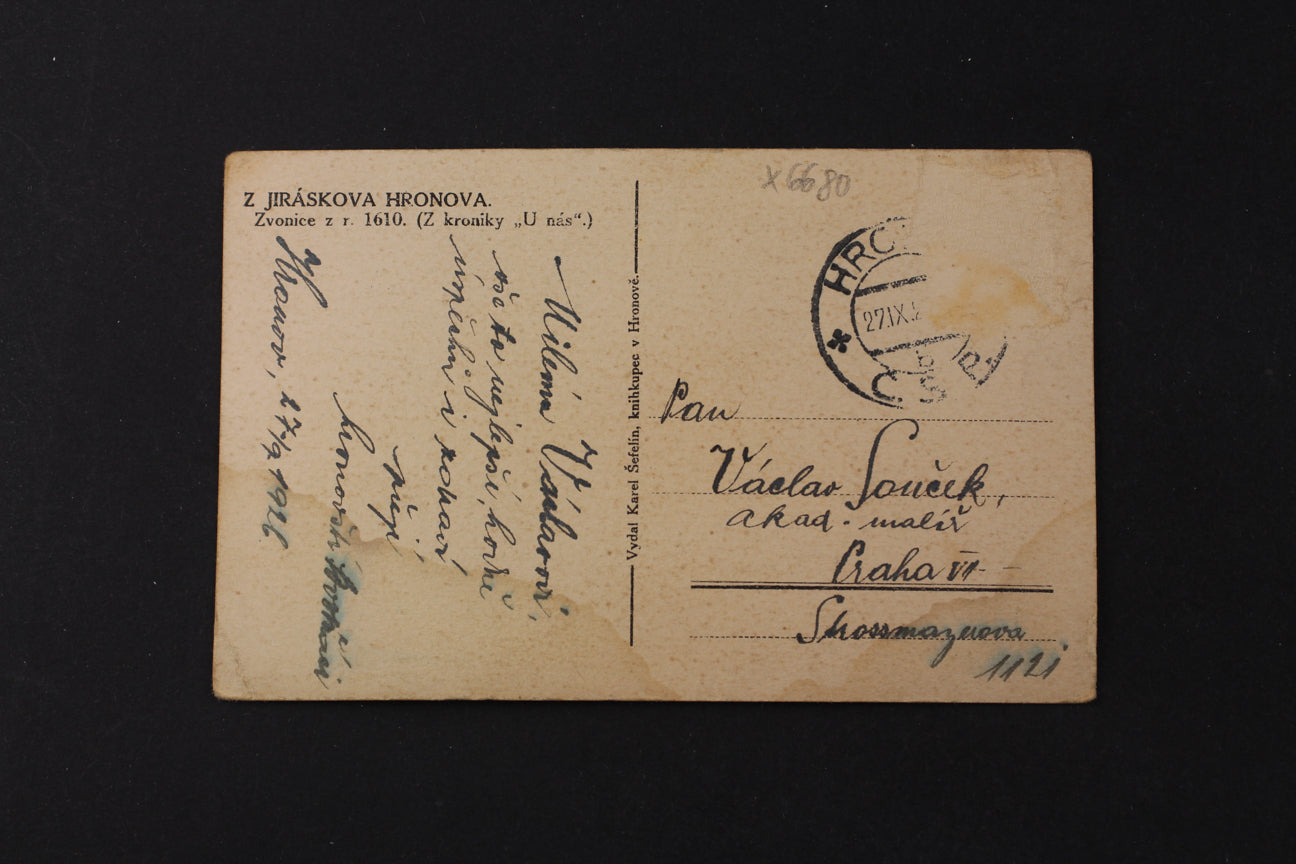 Z JIRÁSKOVA HRONOVA.
Zvonice z r. 1610. (Z kroniky „U nás“.)
Milému Václavovi,
vše to nejlepší, hodně
úspěchů i zdraví
přejí
hronovští
Hronov, 27/9 1926
Vydal Karel Šefelín, knihkupec v Hronově.
X6680
HRO
27.IX.
b
ČSR
Pan
Václav Souček,
akad. malíř
Praha VII
Strossmayerova
1121